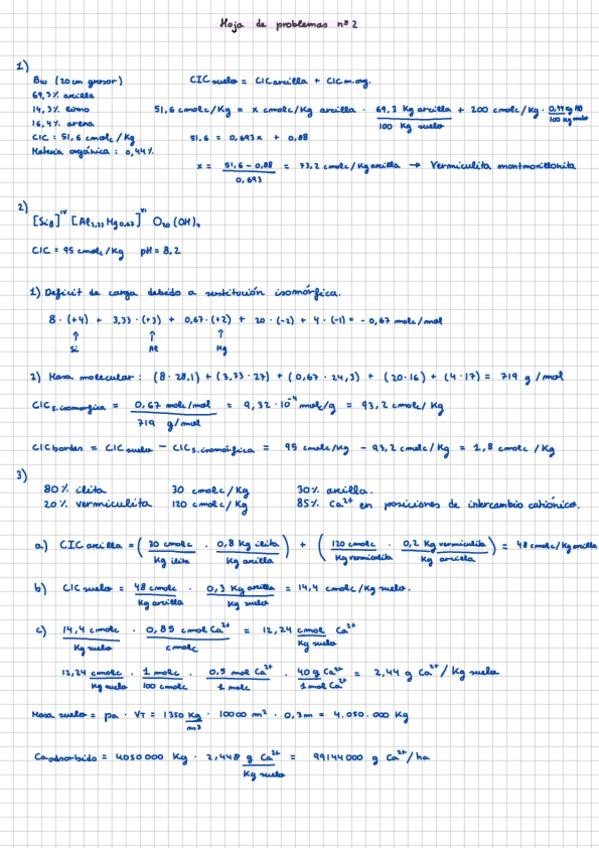 Hoja de problemas nº 2
1)
Bw (20 cm grosor)
69,3% arcilla
14,3% limo
16,4% arena
CIC: 51,6 cmolc/Kg
Materia orgánica: 0,44%
CIC suelo = CIC arcilla + CIC m.org.
51,6 cmolc/Kg = x cmolc/Kg arcilla · 69,3 Kg arcilla / 100 Kg suelo + 200 cmolc/Kg · 0,44 Kg MO / 100 Kg suelo
51,6 = 0,693x + 0,88
x = 51,6 - 0,88 / 0,693 = 73,2 cmolc/Kg arcilla → Vermiculita montmorillonita
2)
[Si8]^IV [Al3,33 Mg0,67]^VI O20 (OH)4
CIC = 95 cmolc/Kg pH = 8,2
1) Déficit de carga debido a sustitución isomórfica.
8 · (+4) + 3,33 · (+3) + 0,67 · (+2) + 20 · (-2) + 4 · (-1) = - 0,67 molc/mol
↑ ↑ ↑
Si Al Mg
2) Masa molecular: (8 · 28,1) + (3,33 · 27) + (0,67 · 24,3) + (20 · 16) + (4 · 17) = 719 g/mol
CIC s.isomórfica = 0,67 molc/mol / 719 g/mol = 9,32 · 10^-4 molc/g = 93,2 cmolc/Kg
CIC bordes = CIC suelo - CIC s.isomórfica = 95 cmolc/Kg - 93,2 cmolc/Kg = 1,8 cmolc/Kg
3)
80% ilita 30 cmolc/Kg 30% arcilla.
20% vermiculita 120 cmolc/Kg 85% Ca²⁺ en posiciones de intercambio catiónico.
a) CIC arcilla = (30 cmolc / Kg ilita · 0,8 Kg ilita / Kg arcilla) + (120 cmolc / Kg vermiculita · 0,2 Kg vermiculita / Kg arcilla) = 48 cmolc/Kg arcilla
b) CIC suelo = 48 cmolc / Kg arcilla · 0,3 Kg arcilla / Kg suelo = 14,4 cmolc/Kg suelo.
c) 14,4 cmolc / Kg suelo · 0,85 cmol Ca²⁺ / cmolc = 12,24 cmol / Kg suelo Ca²⁺
12,24 cmolc / Kg suelo · 1 molc / 100 cmolc · 0,5 mol Ca²⁺ / 1 molc · 40 g Ca²⁺ / 1 mol Ca²⁺ = 2,44 g Ca²⁺/Kg suelo
Masa suelo = pa · VT = 1350 Kg / m³ · 10000 m² · 0,3 m = 4.050.000 Kg
Ca adsorbido = 4050000 Kg · 2,448 g Ca²⁺ / Kg suelo = 9914400 g Ca²⁺/ha